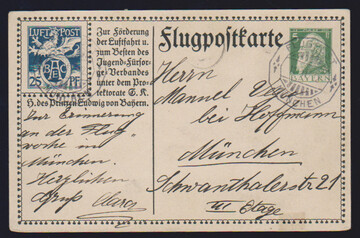 LUFT-POST
BAEC
25 Pf.
Zur Förderung
der Luftfahrt u.
zum Besten des
Jugend-Fürsor-
ge-Verbandes
unter dem Pro-
tektorate S.K.
H. des Prinzen Ludwig von Bayern.
Flugpostkarte
BAYERN
MÜNCHEN
Herrn
Manuel
bei Hoffmann
München
Schwanthalerstr. 21
III Etage
Zur Erinnerung
an der Flug-
woche in
München.
Herzlichen
Gruß